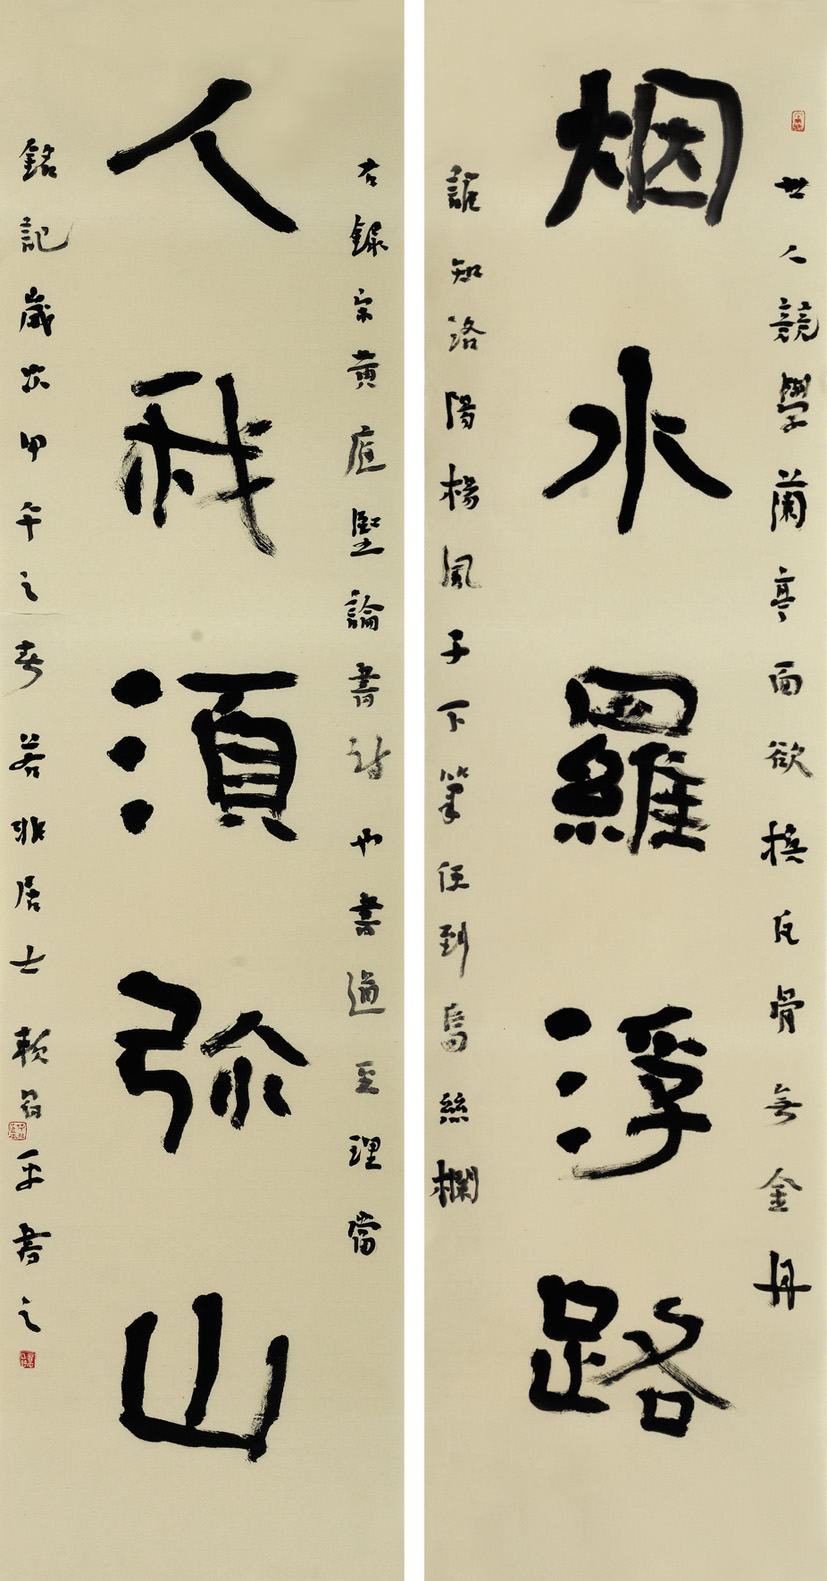 世人競學蘭亭面欲換凡骨無金丹
烟水羅浮路
誰知洛陽楊風子下筆便到烏絲欄
右錄宋黄庭堅論書詩也書通至理當
人我湏弥山
銘記歲次甲午之春若非居士賴平書之